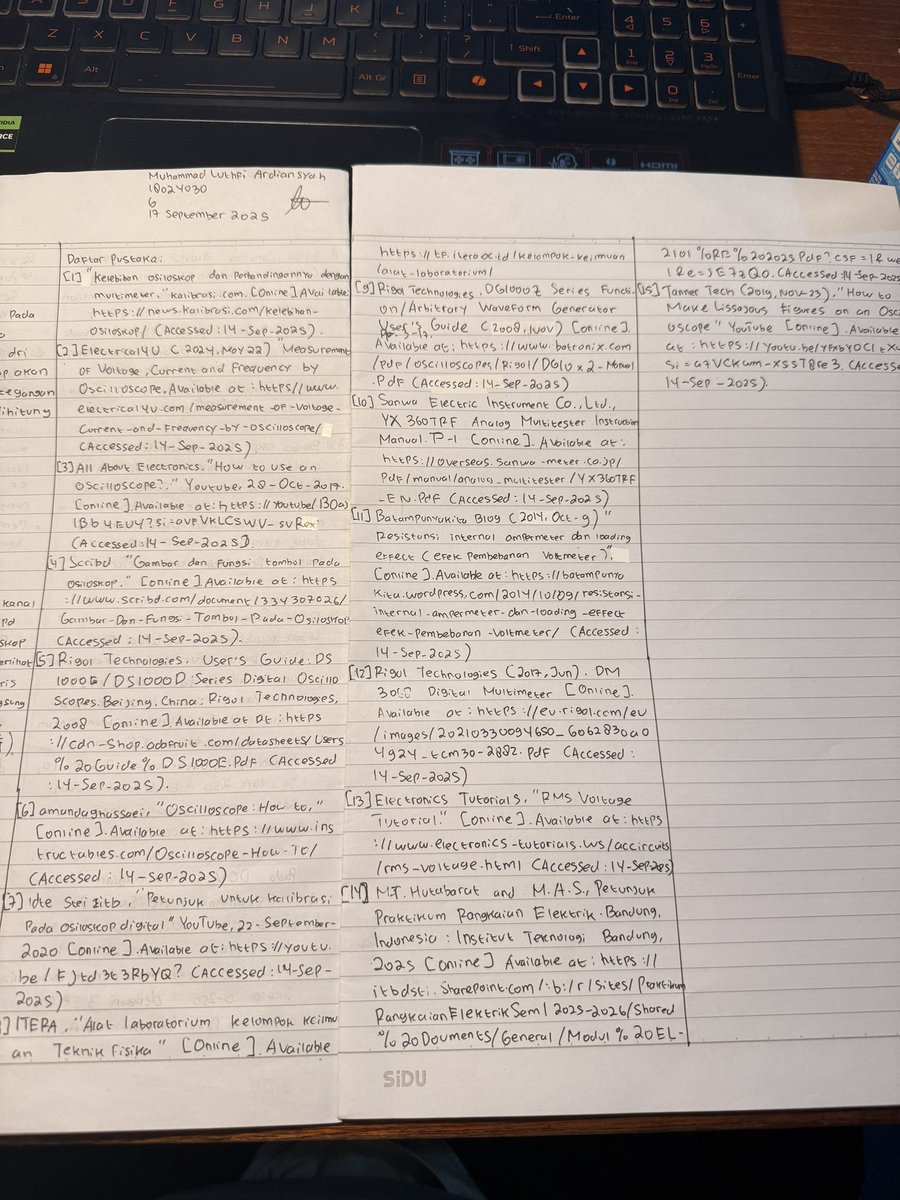 Muhammad Luthfi Ardiansyah
18024030
6
17 September 2025
Pada
dri
akan
tegangan
ihitung
kanal
Pd
skop
erlihat
ris
gsung
Daftar Pustaka:
[1] "Kelebihan osiloskop dan Perbandingannya dengan
multimeter," kalibrasi.com. [Online] Available
https://news.kalibrasi.com/kelebihan-
osiloskop/ (Accessed: 14-Sep-2025).
[2] Electrical4U (2024, May 22) "Measurement
of Voltage, Current and Frequency by
Oscilloscope, Available at: https://www.
electrical4u.com/measurement-of-Voltage-
Current-and-Frequency-by-oscilloscope/
(Accessed: 14-Sep-2025).
[3] All About Electronics, "How to use an
oscilloscope?," Youtube, 28-Oct-2017.
[Online] Available at: https://Youtube/
(Accessed: 14-Sep-2025).
[4] Scribd "Gambar dan Fungsi tombol Pada
osiloskop," [Online]. Available at: https
://www.scribd.com/document/334307026/
Gambar-Dan-Fungsi-Tombol-Pada-Osiloskop
(Accessed: 14-Sep-2025).
[5] Rigol Technologies, User's Guide: DS
1000E/DS1000D Series Digital Oscillo
Scopes. Beijing, China: Rigol Technologies,
2008 [Online] Available at at: https
://cdn-shop.adafruit.com/datasheets/Users
%20Guide%DS1000E.Pdf (Accessed
:14-Sep-2025).
[6] amandaghassaei, "Oscilloscope: How to,"
[Online]. Available at: https://www.ins
tructables.com/Oscilloscope-How-To/
(Accessed: 14-Sep-2025)
[7] ldte Stei itb, "Petunjuk untuk kalibrasi
Pada osiloskop digital" YouTube, 22-September-
2020 [Online]. Available at: https://youtu.
be/Fjtd3t3RbYQ? (Accessed: 14-Sep-
2025)
] ITERA, "Alat laboratorium kelompok keilmu
an Teknik Fisika" [Online]. Available
https://tf.itera.ac.id/kelompok-keilmuan
/alat-laboratorium/
[9] Rigol Technologies, DG1000Z Series Functi
on/Arbitrary Waveform Generator
User's Guide (2008, Nov) [Online].
Available at: https://www.batronix.com
/pdf/oscilloscopes/Rigol/DG10x2-Manual
.Pdf (Accessed: 14-Sep-2025)
[10] Sanwa Electric Instrument Co., Ltd.,
YX 360TRF Analog Multitester Instruction
Manual. P-1 [Online]. Available at:
https://overseas.sanwa-meter.co.jp/
Pdf/manual/analog_multitester/YX360TRF
_EN.Pdf (Accessed: 14-Sep-2025)
[11] Batampunyakita Blog (2014, Oct-9) "
Resistansi internal ampermeter dan loading
effect (efek Pembebanan Voltmeter)",
[Online]. Available at: https://batampunya
kita.wordpress.com/2014/10/09/resistansi-
internal-ampermeter-dan-loading-effect
efek-Pembebanan-Voltmeter/ (Accessed:
14-Sep-2025)
[12] Rigol Technologies (2017, Jun). DM
Digital Multimeter [Online].
Available at: https://eu.rigol.com/eu
/images/20210330094650_6062830a0
4924_tcm30-2882.Pdf (Accessed:
14-Sep-2025)
[13] Electronics Tutorials, "RMS Voltage
Tutorial." [Online]. Available at: https
://www.electronics-tutorials.ws/accircuits
/rms-voltage.html (Accessed: 14-Sep-2025)
[14] M.T. Hutabarat and M.A.S., Petunjuk
Praktikum Rangkaian Elektrik. Bandung,
Indonesia: Institut Teknologi Bandung,
2025 [Online] Available at: https://
itbdsti.sharepoint.com/:b:/r/sites/Praktikum
RangkaianElektrikSem1 2025-2026/Shared
%20Douments/General/Modul%20EL-
2101%RE%202025Pdf?.CSF=1&we
(Accessed: 14-Sep-2025
[15] Tanner Tech (2019, Nov-23), "How to
Make Lissajous Figures on an Osc
oscope" YouTube [Online]. Available
at: https://Youtu.be/
(Accesse
14-Sep-2025).
SiDU
Enter
Shift
Alt
Alt Gr
Z
X
C
V
B
N
M
J
K
L
HDMI